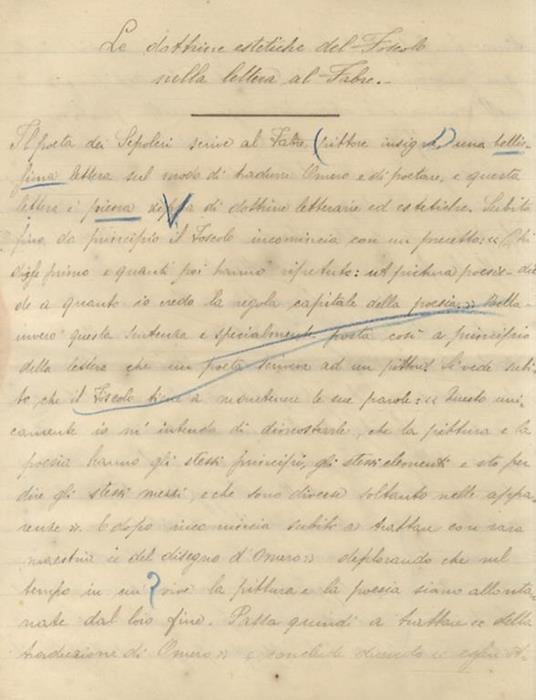 Le dottrine estetiche del Foscolo
nella lettera al Fabre.
Il poeta dei Sepolcri scrive al Fabre (pittore insigne) una bellis-
sima lettera sul modo di tradurre Omero e di poetare, e questa
lettera è piena di dottrine letterarie ed estetiche. Subito
fino da principio il Foscolo incomincia con un precetto: « Chi
disse primo e quanti poi hanno ripetuto: ut pictura poesis - die-
de a quanto io credo la regola capitale della poesia. » Bella
invero questa sentenza e specialmente posta così a principio
della lettera che un poeta scriveva ad un pittore. Si vede subi-
to che il Foscolo tiene a mantenere le sue parole: « Questo uni-
camente io m'intendo di dimostrarle, che la pittura e la
poesia hanno gli stessi principii, gli stessi elementi e sto per
dire gli stessi mezzi, e che sono diverse soltanto nelle appa-
renze ». E dopo incomincia subito a trattare con rara
maestria « del disegno d'Omero » deplorando che nel
tempo in cui vive la pittura e la poesia siano allonta-
nate dal loro fine. Passa quindi a trattare « della
traduzione di Omero » e conclude dicendo